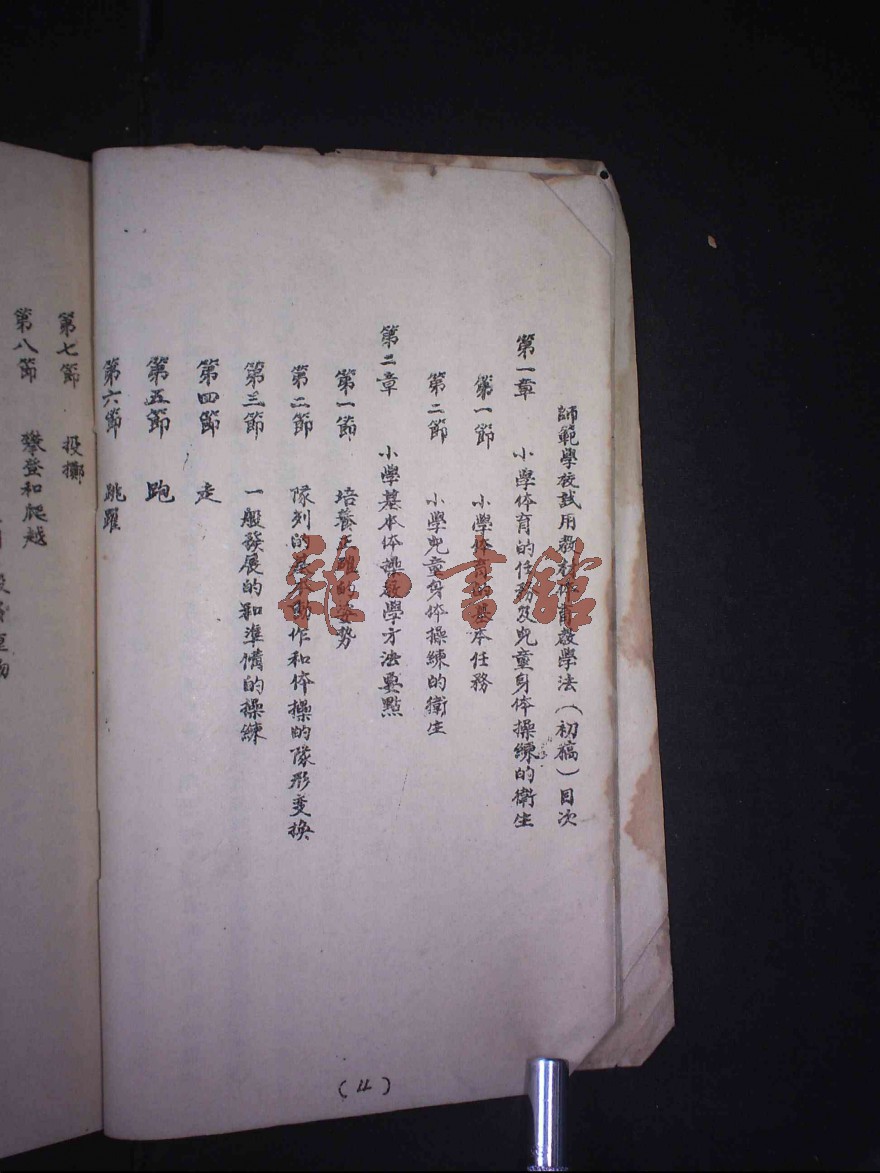 師範學校試用教材体育教學法（初稿）目次
第一章 小學体育的任務及兒童身体操練的衛生
第一節 小學体育的基本任務
第二節 小學兒童身体操練的衛生
第二章 小學基本体操教學方法要點
第一節 培養正確的姿勢
第二節 隊列的基本動作和体操的隊形变换
第三節 一般發展的和準備的操練
第四節 走
第五節 跑
第六節 跳躍
第七節 投擲
第八節 攀登和爬越
雜·書館